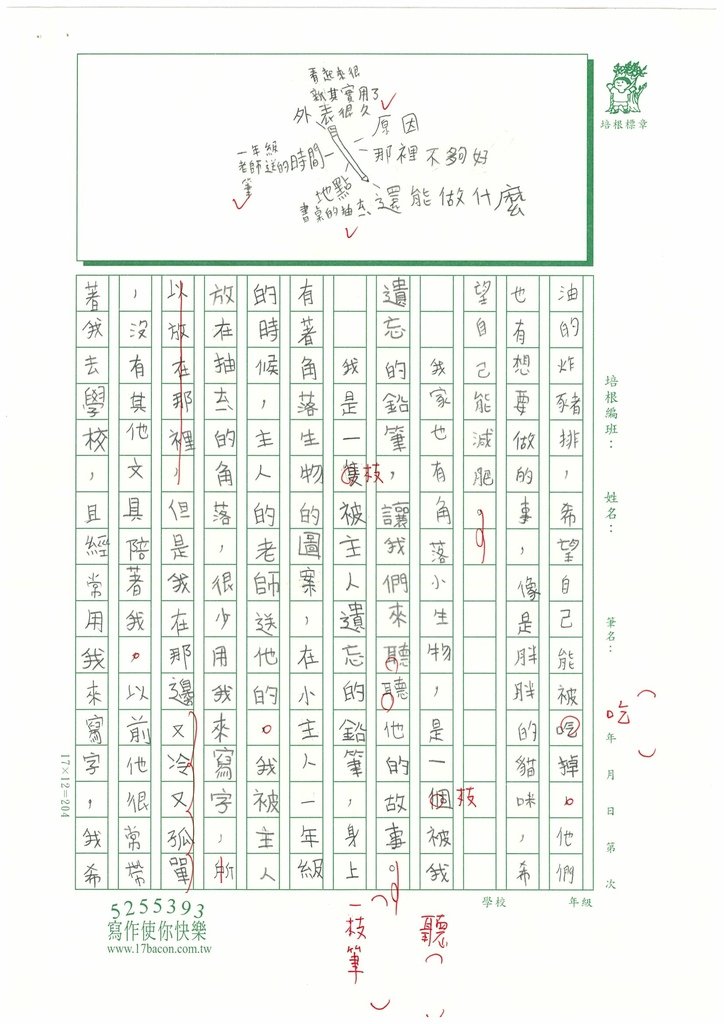 看起來很
新其實用了
很久
外表
原因
那裡不夠好
一年級
老師送的
筆
時間
地點
書桌的抽
還能做什麼
培根標章
培根編班：
姓名：
筆名：
年 月 日 第 次
學校
年級
油的炸豬排，希望自己能被吃掉。他們
也有想要做的事，像是胖胖的貓咪，希
望自己能減肥。
我家也有角落小生物，是一個被我
遺忘的鉛筆，讓我們來聽聽他的故事。
我是一隻被主人遺忘的鉛筆，身上
有著角落生物的圖案，在小主人一年級
的時候，主人的老師送他的。我被主人
放在抽的角落，很少用我來寫字，所
以放在那裡，但是我在那邊又冷又孤單
，沒有其他文具陪著我。以前他很常帶
著我去學校，且經常用我來寫字，我希
枝
枝
吃
聽
一枝筆
17×12=204
5255393
寫作使你快樂
www.17bacon.com.tw